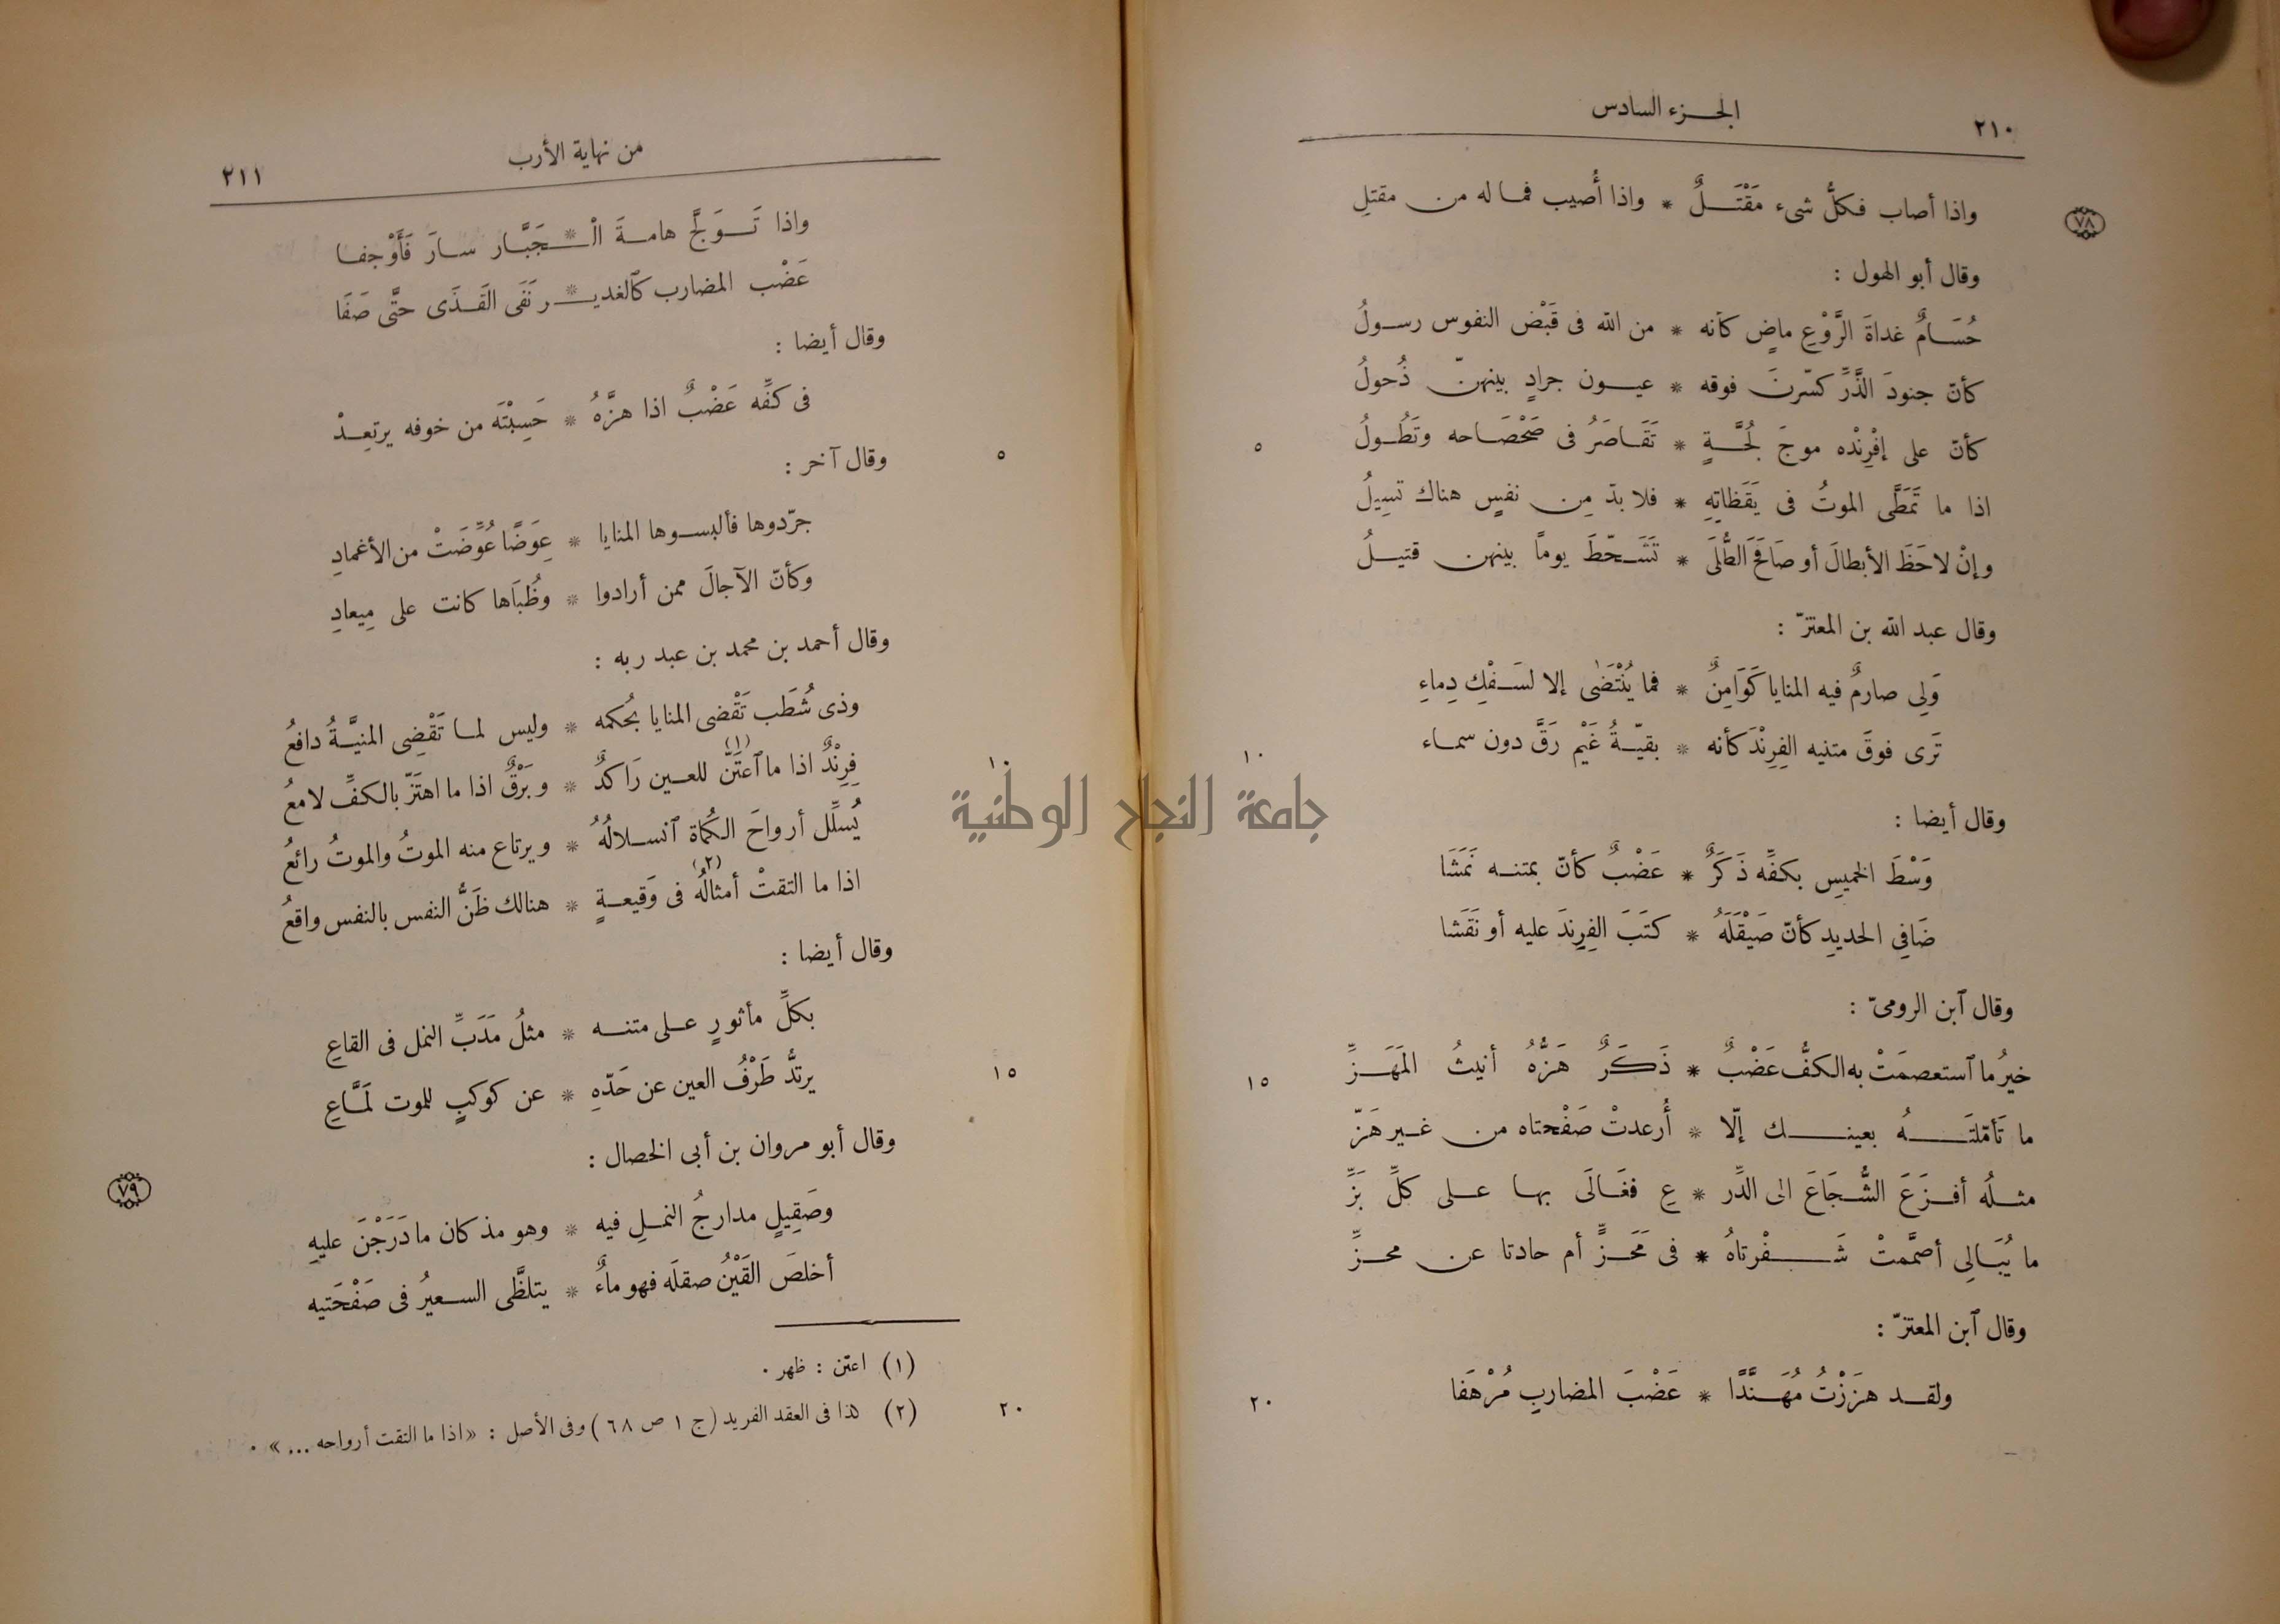 ٢١٠
الجزء السادس
٧٨
واذا أصاب فكلُّ شىء مَقْتَلٌ * واذا أُصيب فماله من مقتلِ
وقال أبو الهول :
حُسَامٌ غداةَ الرَّوْعِ ماضٍ كأنه * من الله فى قَبْض النفوس رسولُ
كأنّ جنودَ الذَّرِّ كسّرنَ فوقه * عيون جرادٍ بينهنّ ذُحولُ
كأنّ على إفْرِنْده موجَ لُجَّةٍ * تَقَاصَرُ فى ضَحْضَاحه وتَطُولُ
٥
اذا ما تَمَطَّى الموتُ فى يَقَظاتِهِ * فلا بدّ مِن نفسٍ هناك تسِيلُ
وإنْ لاحَظَ الأبطالَ أو صَافَحَ الطُّلَى * تَشَحّطَ يوماً بينهن قتيلُ
وقال عبد الله بن المعتزّ :
وَلِى صارمٌ فيه المنايا كَوَامِنٌ * فما يُنْتَضَى إلا لسَفْكِ دِماءِ
تَرَى فوقَ متنيه الفِرِنْدَ كأنه * بقيّةُ غَيْم رَقَّ دون سماء
١٠
وقال أيضا :
وَسْطَ الخميسِ بكفِّه ذَكَرٌ * عَضْبٌ كأنّ بمتنه نَمَشَا
ضَافِى الحديدِ كأنّ صَيْقَلَهُ * كتَبَ الفِرِندَ عليه أو نَقَشا
وقال ٱبن الرومىّ :
خيرُ ما ٱستعصمَتْ به الكفُّ عَضْبٌ * ذَكَرٌ هَزُّهُ أنيثُ المَهَزِّ
١٥
ما تَأمّلتَهُ بعينك إلّا * أُرعدتْ صَفْحتاه من غير هَزّ
مثلُه أفزَعَ الشُّجَاعَ الى الدِّر * عِ فغَالَى بها على كلِّ بَزِّ
ما يُبَالِى أصمَّمتْ شَفْرتاهُ * فى مَحَزٍّ أم حادتا عن محزِّ
وقال ٱبن المعتزّ :
ولقد هزَزْتُ مُهَنَّدًا * عَضْبَ المضاربِ مُرْهَفا
٢٠
من نهاية الأرب
٢١١
واذا تَوَلَّجَ هامةَ الْـ * جَبَّار سارَ فَأَوْجفا
عَضْب المضارب كٱلغديـ * ر نَفَى القَذَى حتَّى صَفَا
وقال أيضا :
فى كفِّه عَضْبٌ اذا هزَّهُ * حَسِبْتَه من خوفه يرتعِدْ
وقال آخر :
٥
جرّدوها فألبسوها المنايا * عِوَضًا عُوِّضَتْ من الأغمادِ
وكأنّ الآجالَ ممن أرادوا * وظُبَاها كانت على مِيعادِ
وقال أحمد بن محمد بن عبد ربه :
وذى شُطَب تَقْضى المنايا بحُكمه * وليس لما تَقْضِى المنيَّةُ دافعُ
فِرِنْدٌ اذا ما ٱعتَنّ (١) للعين رَاكدٌ * وبَرْقٌ اذا ما اهتَزّ بالكفِّ لامعُ
١٠
يُسلِّل أرواحَ الكُماة ٱنسلالُهُ * ويرتاع منه الموتُ والموتُ رائعُ
اذا ما التقتْ أمثالُه (٢) فى وَقيعةٍ * هنالك ظَنُّ النفس بالنفس واقعُ
وقال أيضا :
بكلِّ مأثورٍ على متنه * مثلُ مَدَبِّ النمل فى القاعِ
يرتدُّ طَرْفُ العين عن حَدّهِ * عن كوكبٍ للموت لَمَّاعِ
١٥
وقال أبو مروان بن أبى الخصال :
وصَقِيلٍ مدارجُ النملِ فيه * وهو مذ كان ما دَرَجْنَ عليهِ
٧٩
أخلصَ القَيْنُ صقلَه فهو ماءٌ * يتلظَّى السعيرُ فى صَفْحَتيه
(١) اعتّن : ظهر .
(٢) كذا فى العقد الفريد (ج ١ ص ٦٨) وفى الأصل : «اذا ما التقت أرواحه ...» .
٢٠
جامعة النجاح الوطنية